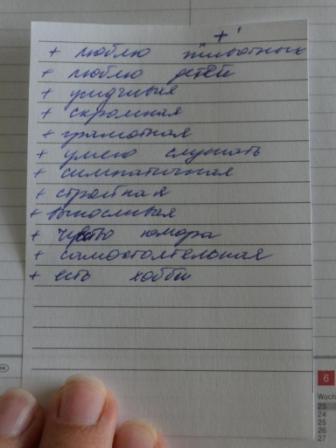 +'
+ люблю животных
+ люблю детей
+ усидчивая
+ скромная
+ грамотная
+ умею слушать
+ симпатичная
+ стройная
+ выносливая
+ чувство юмора
+ самостоятельная
+ есть хобби
6
Woch
23
24
25
26
27